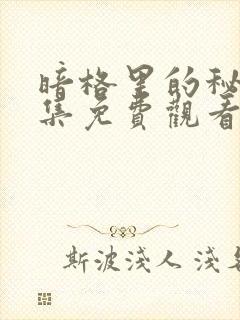 暗格里的秘
集免費觀看
斯波淺人 淺